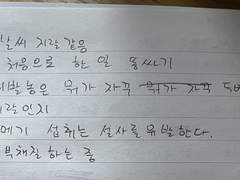 날씨 지랄 같음
처음으로 한 일 똥싸기
뭐가 자꾸 뭐가 자꾸
지랄인지
섭취는 설사를 유발한다.
부채질 하는 중